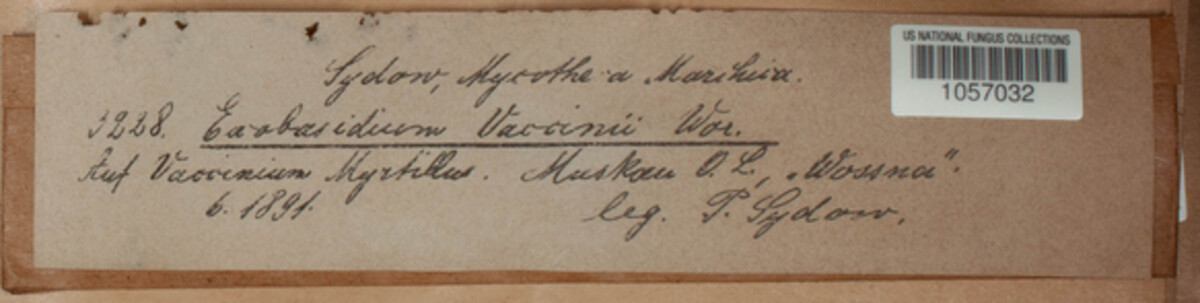 US NATIONAL FUNGUS COLLECTIONS
1057032
Sydow, Mycotheca Marchica.
3228. Exobasidium Vaccinii Wor.
Auf Vaccinium Myrtillus. Muskau O. L., „Wossna".
6. 1891. leg. P. Sydow.